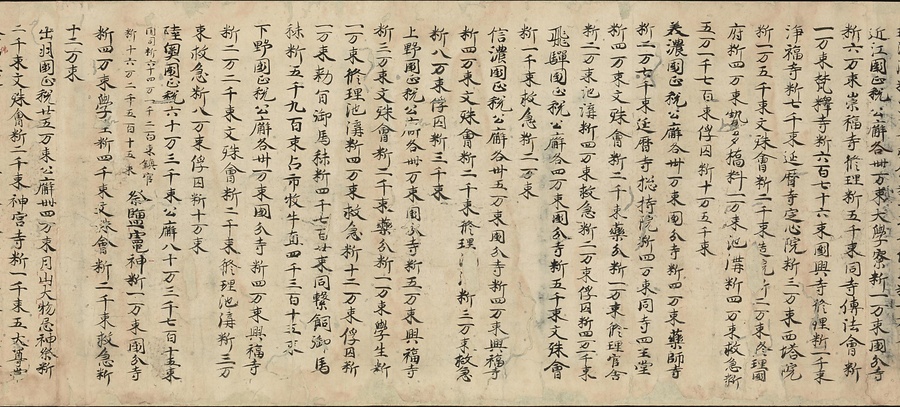 近江國正税公廨各卌万束大學寮料一万束國分寺
料六万束崇福寺修理料五千束同寺傳法會料
一万束梵釋寺料六百七十六束國興寺修理料二千束
淨福寺料七千束延暦寺定心院料三万束四塔院
料一万五千束文殊會料二千束造 料二万束修理國
府料四万束勢多橋料一万束池溝料四万束救急料
五万一千七百束俘囚料十万五千束
美濃國正税公廨各卅万束國分寺料四万束藥師寺
料二万七千束延暦寺総持院料四万束同寺四王堂
料四万束文殊會料二千束藥分料一万束修理官舎
料二万束池溝料四万束救急料二万束俘囚料四万千束
飛驒國正税公廨各四万束國分寺料五千束文殊會
料一千束救急料二万束
信濃國正税公廨各卅五万束國分寺料四万束興福寺
料四万束文殊會料二千束修理 料三万束救急
料八万束俘囚料三千束
上野國正税公廨各卅万束國分寺料五万束興福寺
料三万束文殊會料二千束藥分料一万束學生料
一万束修理池溝料四万束救急料十二万束俘囚料
一万束勅旨御馬秣料四千七百廿束同繋飼御馬
秣料五千九百束占市牧牛直四千三百十五束
下野國正税公廨各卅万束國分寺料四万束興福寺
料二万二千束文殊會料二千束修理池溝料三万
束救急料八万束俘囚料十万束
陸奥國正税六十万三千束公廨八十万三千七百十五束
國司料六十四万一千二百束鎮官
料十六万二千五百十五束 祭鹽竈神料一万束國分寺
料四万束學生料四千束文殊會料二千束救急料
十二万束
出羽國正税廿五万束公廨卌四万束月山大物忌神祭料
二千束文殊會料二千束神宮寺料一千束五大尊